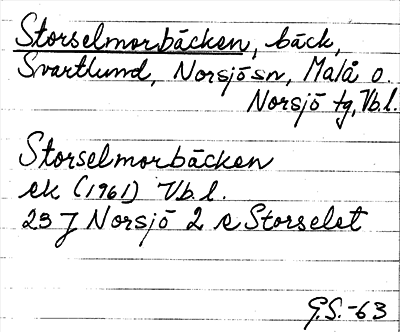 Storselmorbäcken, bäck,
Svartlund, Norsjö sn, Malå o.
Norsjö tg, Vb.l.
Storselmorbäcken
ek (1961) Vb.l.
23 J Norsjö 2 e Storselet
G.S.-63